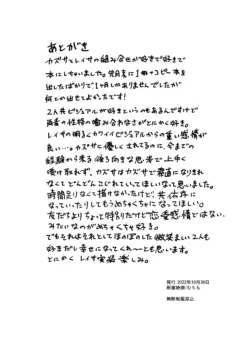 あとがき
カズサとレイサの組み合せが好きで好きで
本にしちゃいました。先月末に1冊+コピー本を
出したばかりで1ヶ月しかありませんでしたが
何とか出せてよかったです!
2人共ビジュアルが好きというのもあるんですけど
両者の性格の噛み合わなさがとにかく好き。
レイサの明るくカワイイビジュアルからの重い感情が
良い…。カズサに優しくされてるのに、今までの
経験から来る後ろ向きな思考で上手く
受け取れず、カズサはカズサで素直になりきれ
なくてどんどんこじれていってほしいなって思いました。
時間足りなくて描けなかったけど、共依存に
なっていたりしてもうめちゃくちゃになってほしい。
友だちよりちょっと特別だけど恋愛感情ではない、
みたいなのがめちゃくちゃ好き。
でもそれはそれとしてほのぼのした微笑ましい2人も
好きだし幸せになってくれ〜とも思います。
とにかく レイサ実装 楽しみ。
発行 2022年10月30日
無断転載禁止